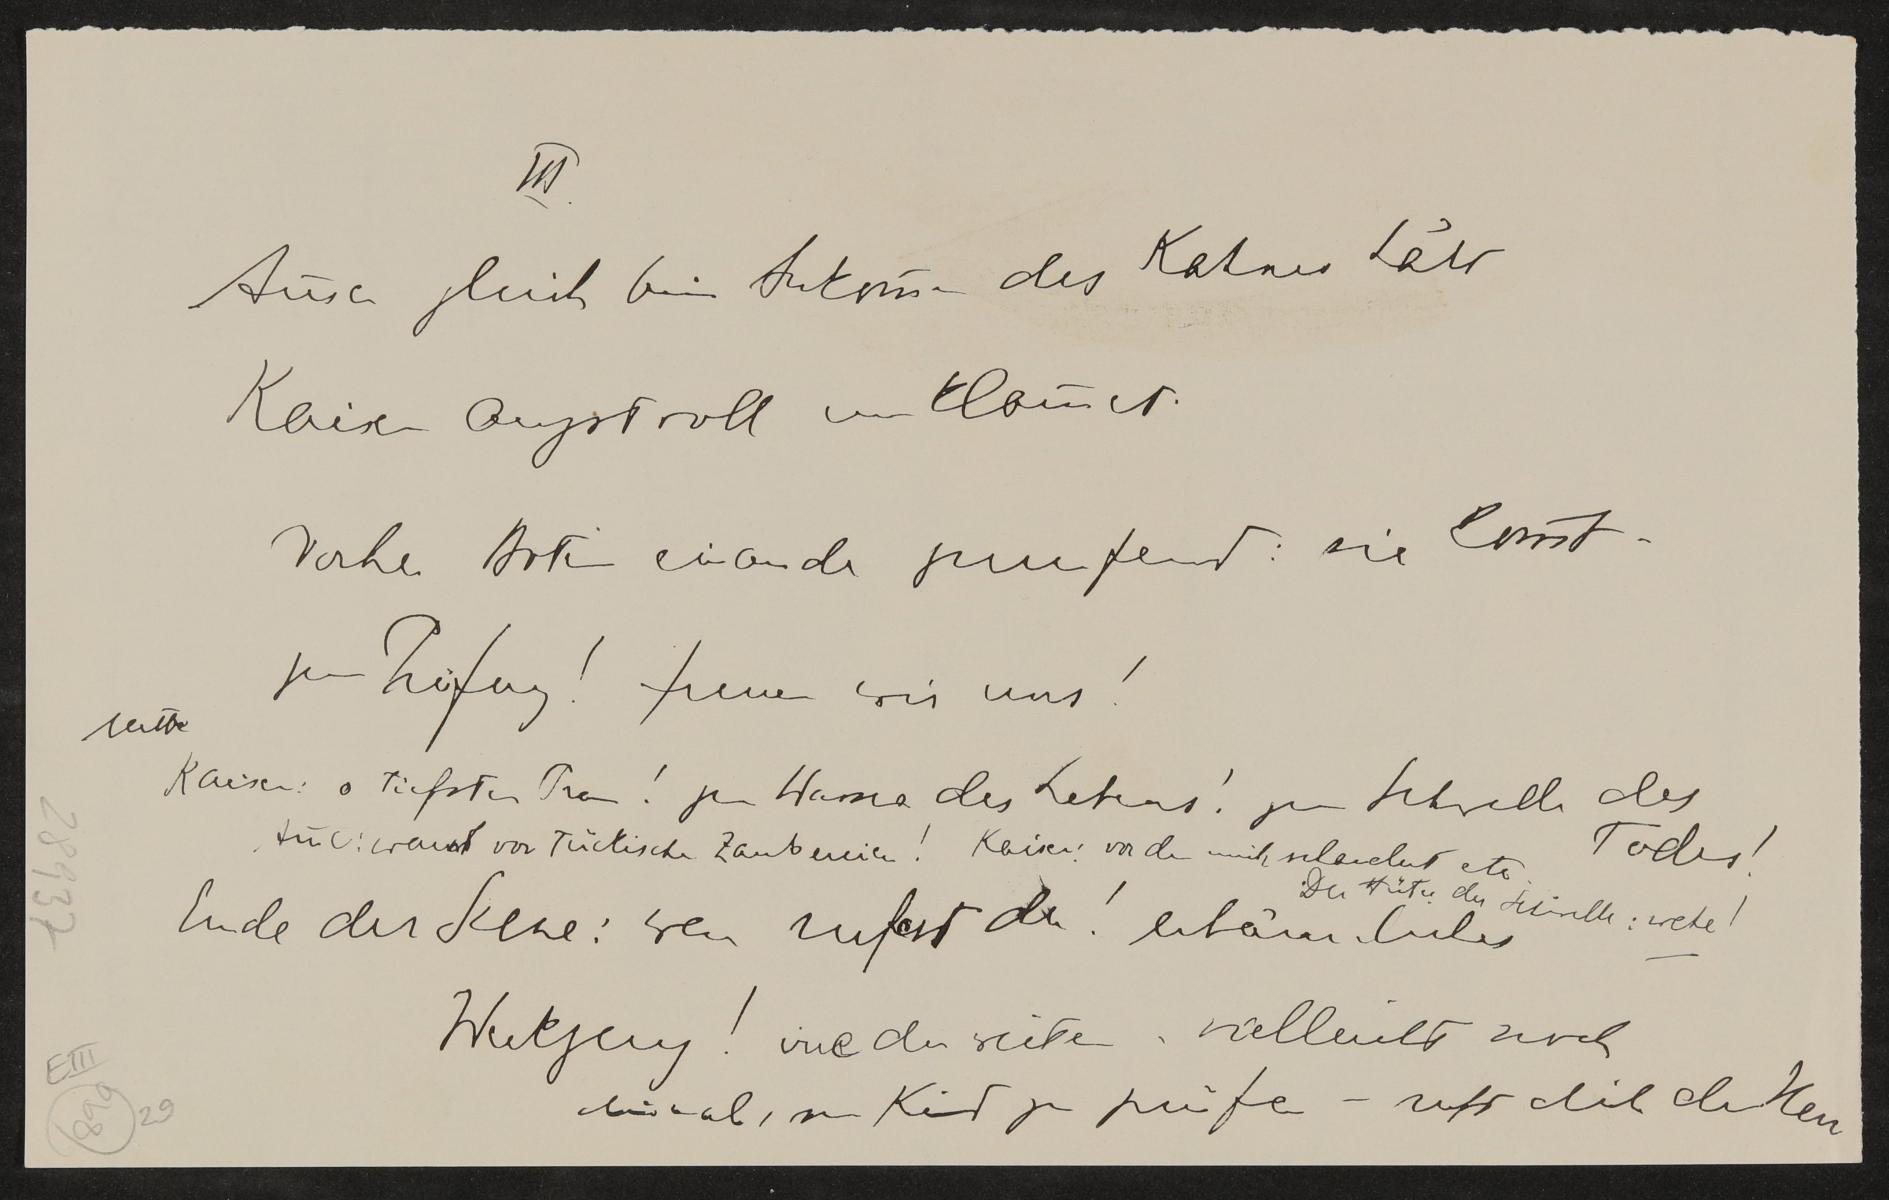 III.
Amme gleich beim Ankom̄en des Kahnes hält
Kaiserin angstvoll umklam̄ert.
Vorher Boten einander zurufend: sie kom̄t
zur Prüfung! freuen wir uns!
Mitte
Kaiserin: o tiefster Traum! zum Wasser des Lebens! zur Schwelle des
Todes!
Amme: warnt vor tückischen Zaubereien! Kaiserin: vor der mich schaudert etc.
Der Hüter der Schwelle: wehe!
Ende der Scene: wen rufest du! erbärmliches
Werkzeug! wieder reiten. vielleicht noch
einmal, ein Kind zu prüfen – ruft dich der Herr
28937
E III
899
29